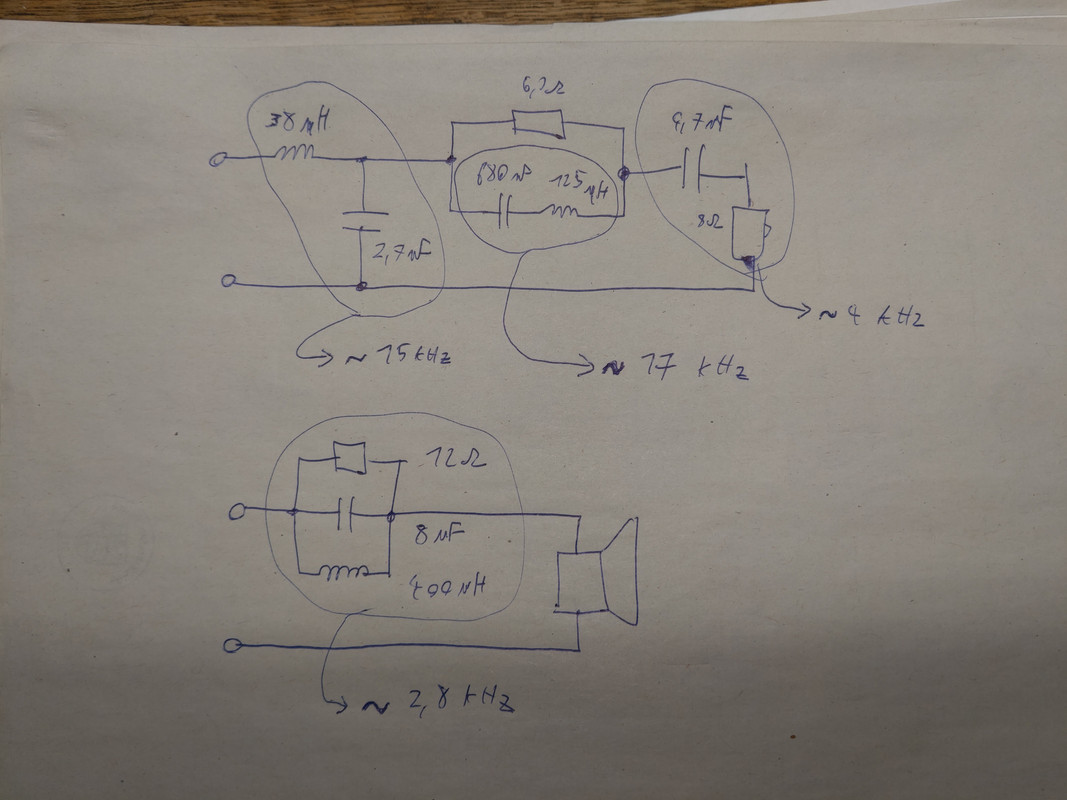 6,2Ω
38 µH
680 nF 125 µH
4,7 µF
8Ω
2,7 µF
~ 4 kHz
~ 15 kHz
~ 17 kHz
12Ω
8 µF
400 µH
~ 2,8 kHz